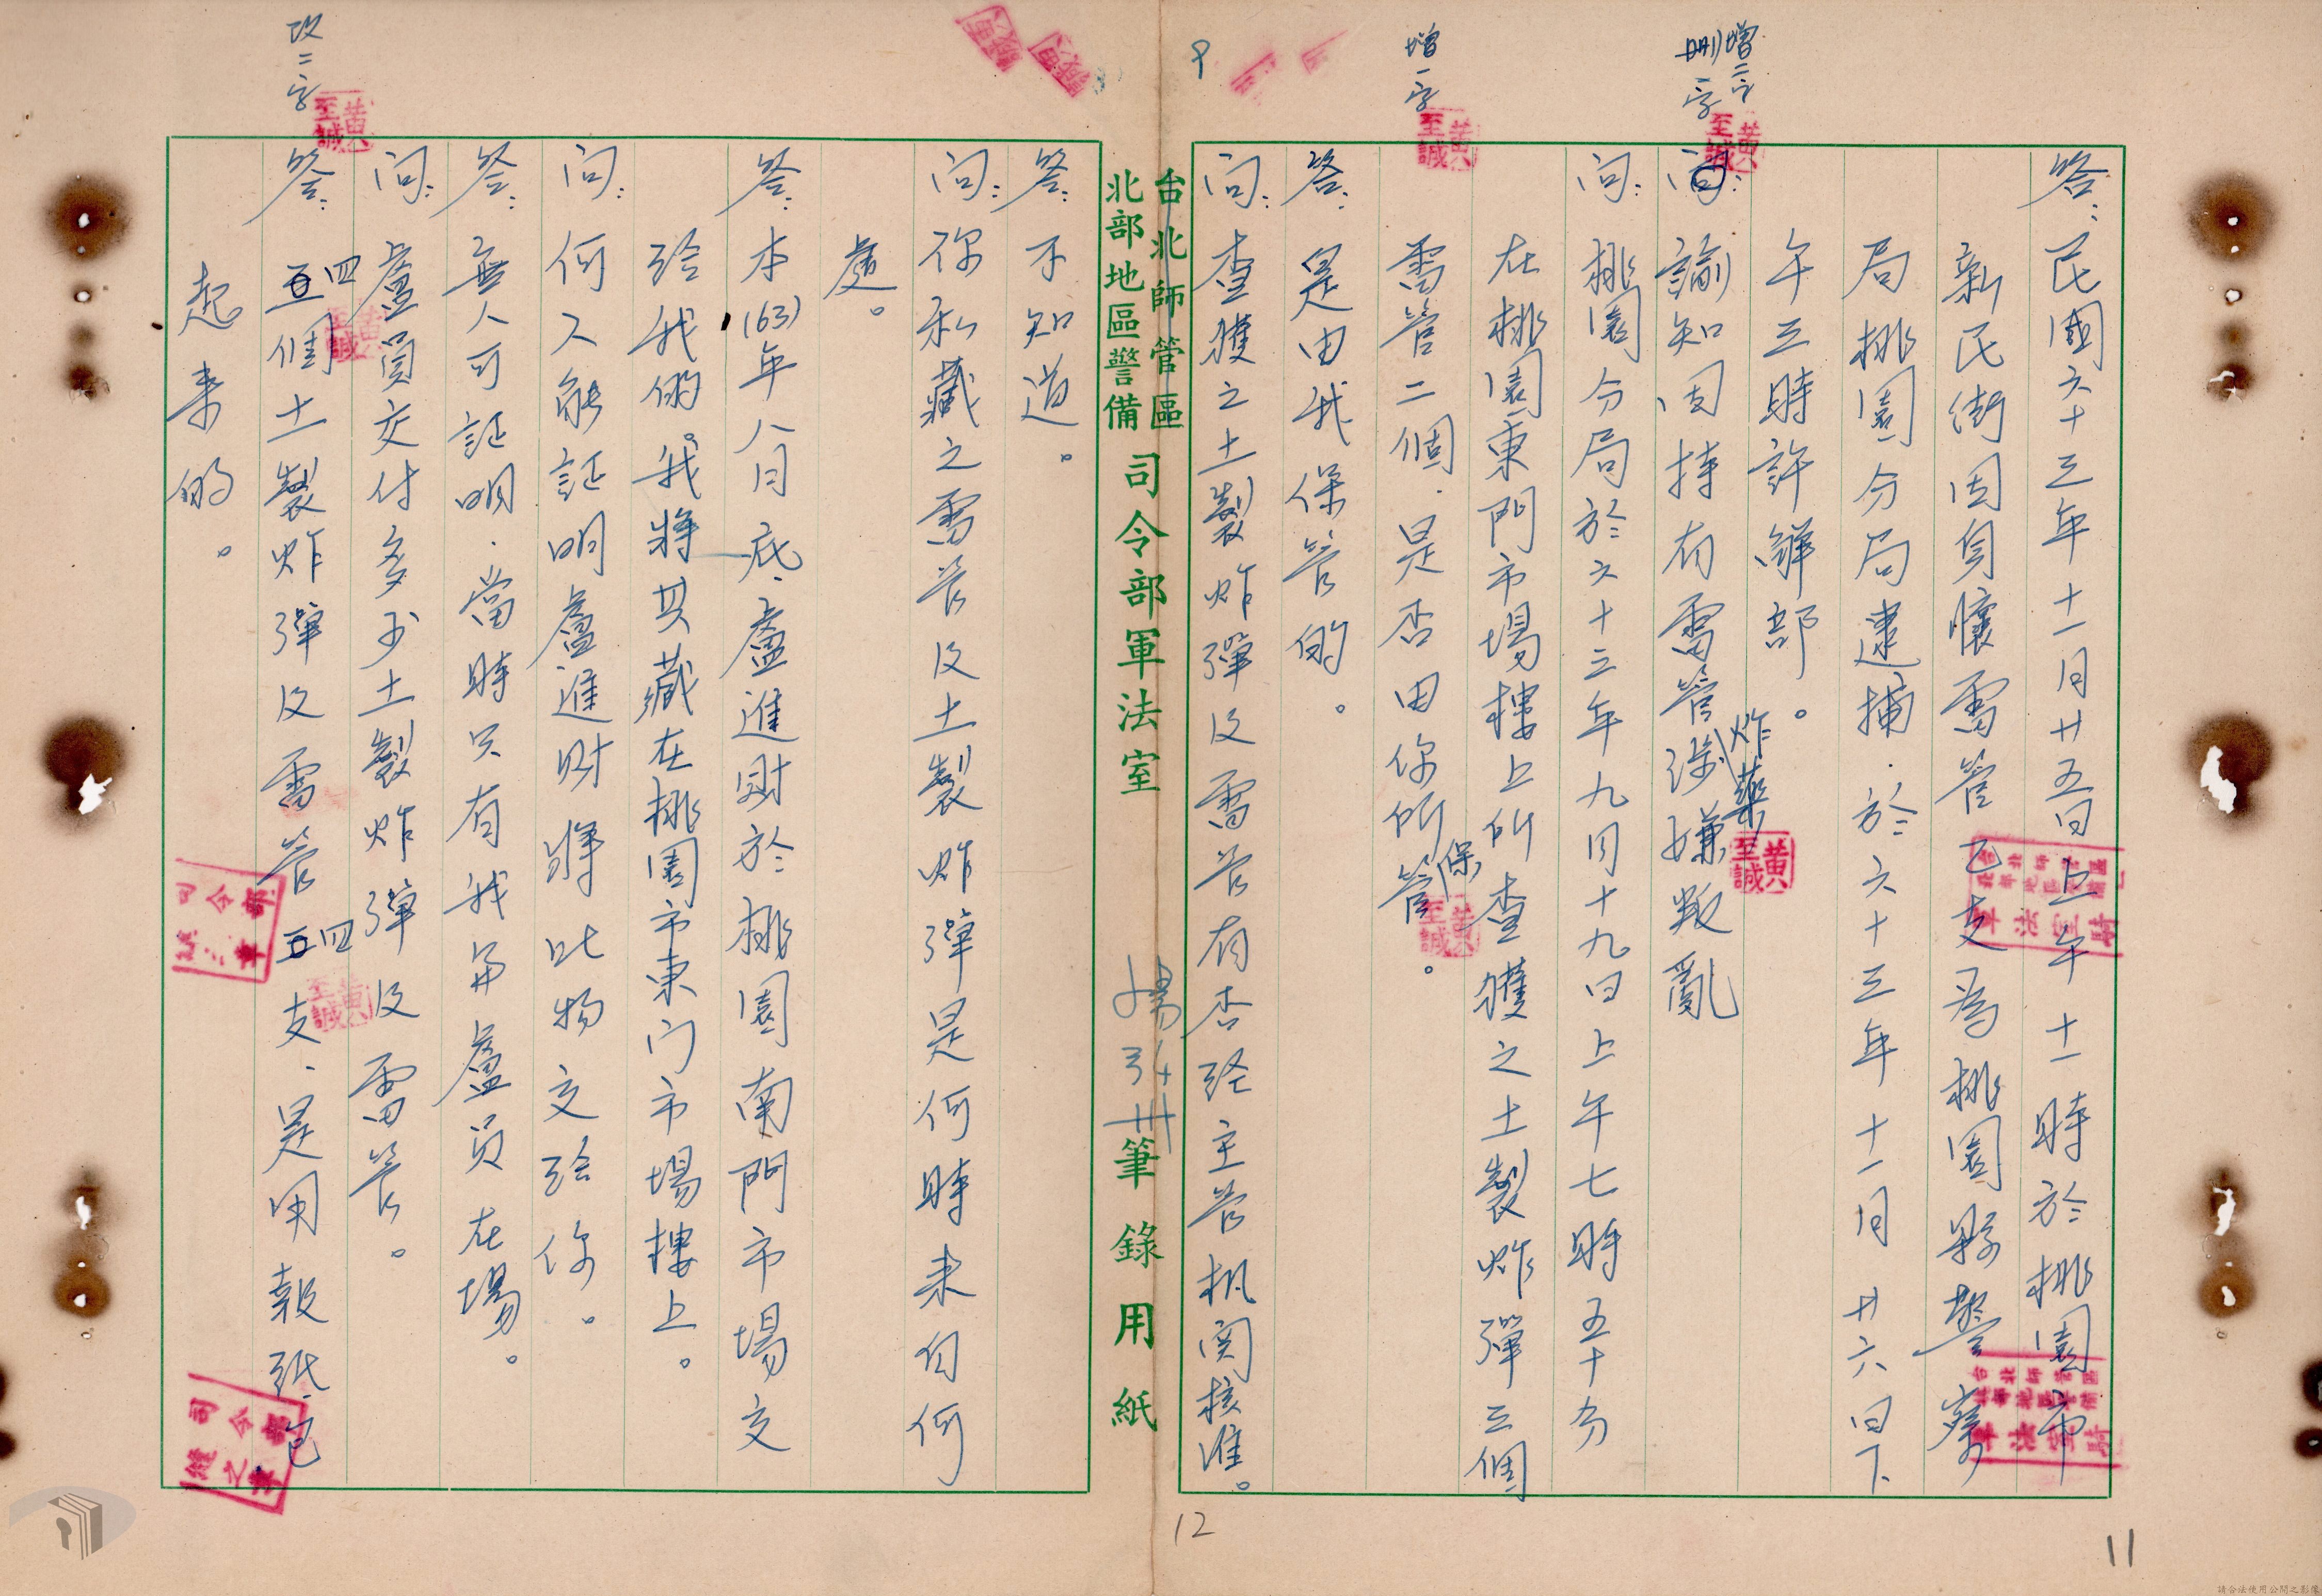 增二字
刪一字
增一字
答：民國六十三年十一月廿五日上午十一時於桃園市
新民街因身懷雷管乙支為桃園縣警察
局桃園分局逮捕．於六十三年十一月廿六日下
午三時許解部。
諭知因持有雷管炸藥涉嫌叛亂
問：桃園分局於六十三年九月十九日上午七時五十分
在桃園東門市場樓上所查獲之土製炸彈三個
雷管二個．是否由你所保管。
答：是由我保管的。
問：查獲之土製炸彈及雷管有否經主管机関核准。
台北師管區
北部地區警備
司令部軍法室
筆錄用紙
答：不知道。
問：你私藏之雷管及土製炸彈是何時來自何
處。
答：本(63)年八月底、盧進財於桃園南門市場交
給我的。我將其藏在桃園市東门市場樓上。
問：何人能証明盧進財將此物交給你。
答：無人可証明．當時只有我與盧員在場。
問：盧員交付多少土製炸彈及雷管。
改二字
答：四個土製炸彈及雷管四支．是用報紙包
起來的。
黃至誠
黃至誠
黃至誠
黃至誠
黃至誠
黃至誠
黃至誠
9
12
11
請合法使用公開之影像